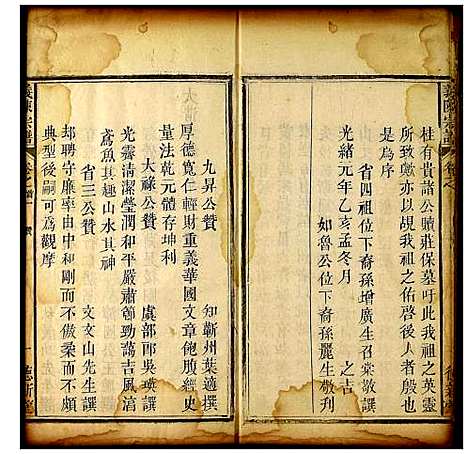 桂有貴諸公贖莊保墓吁此我祖之英靈
所致歟亦以覘我祖之佑啓後人者殷也
是爲序
省四祖位下裔孫增廣生召棠敬撰
光緒元年乙亥孟冬月 之吉
如魯公位下裔孫麗生敬刊
九昇公贊 知蘄州葉適撰
厚德寬仁輕財重義華國文章飽腹經史
量法乾元體存坤利
大祿公贊 虞部郎吳瑛譔
光霽清潔瑩潤和平嚴肅節勁藹吉風淸
鳶魚其趣山水其神
省三公贊 文文山先生譔
邦聘守廉率由中和剛而不傲柔而不頗
典型後嗣可爲觀摩
義陳宗譜